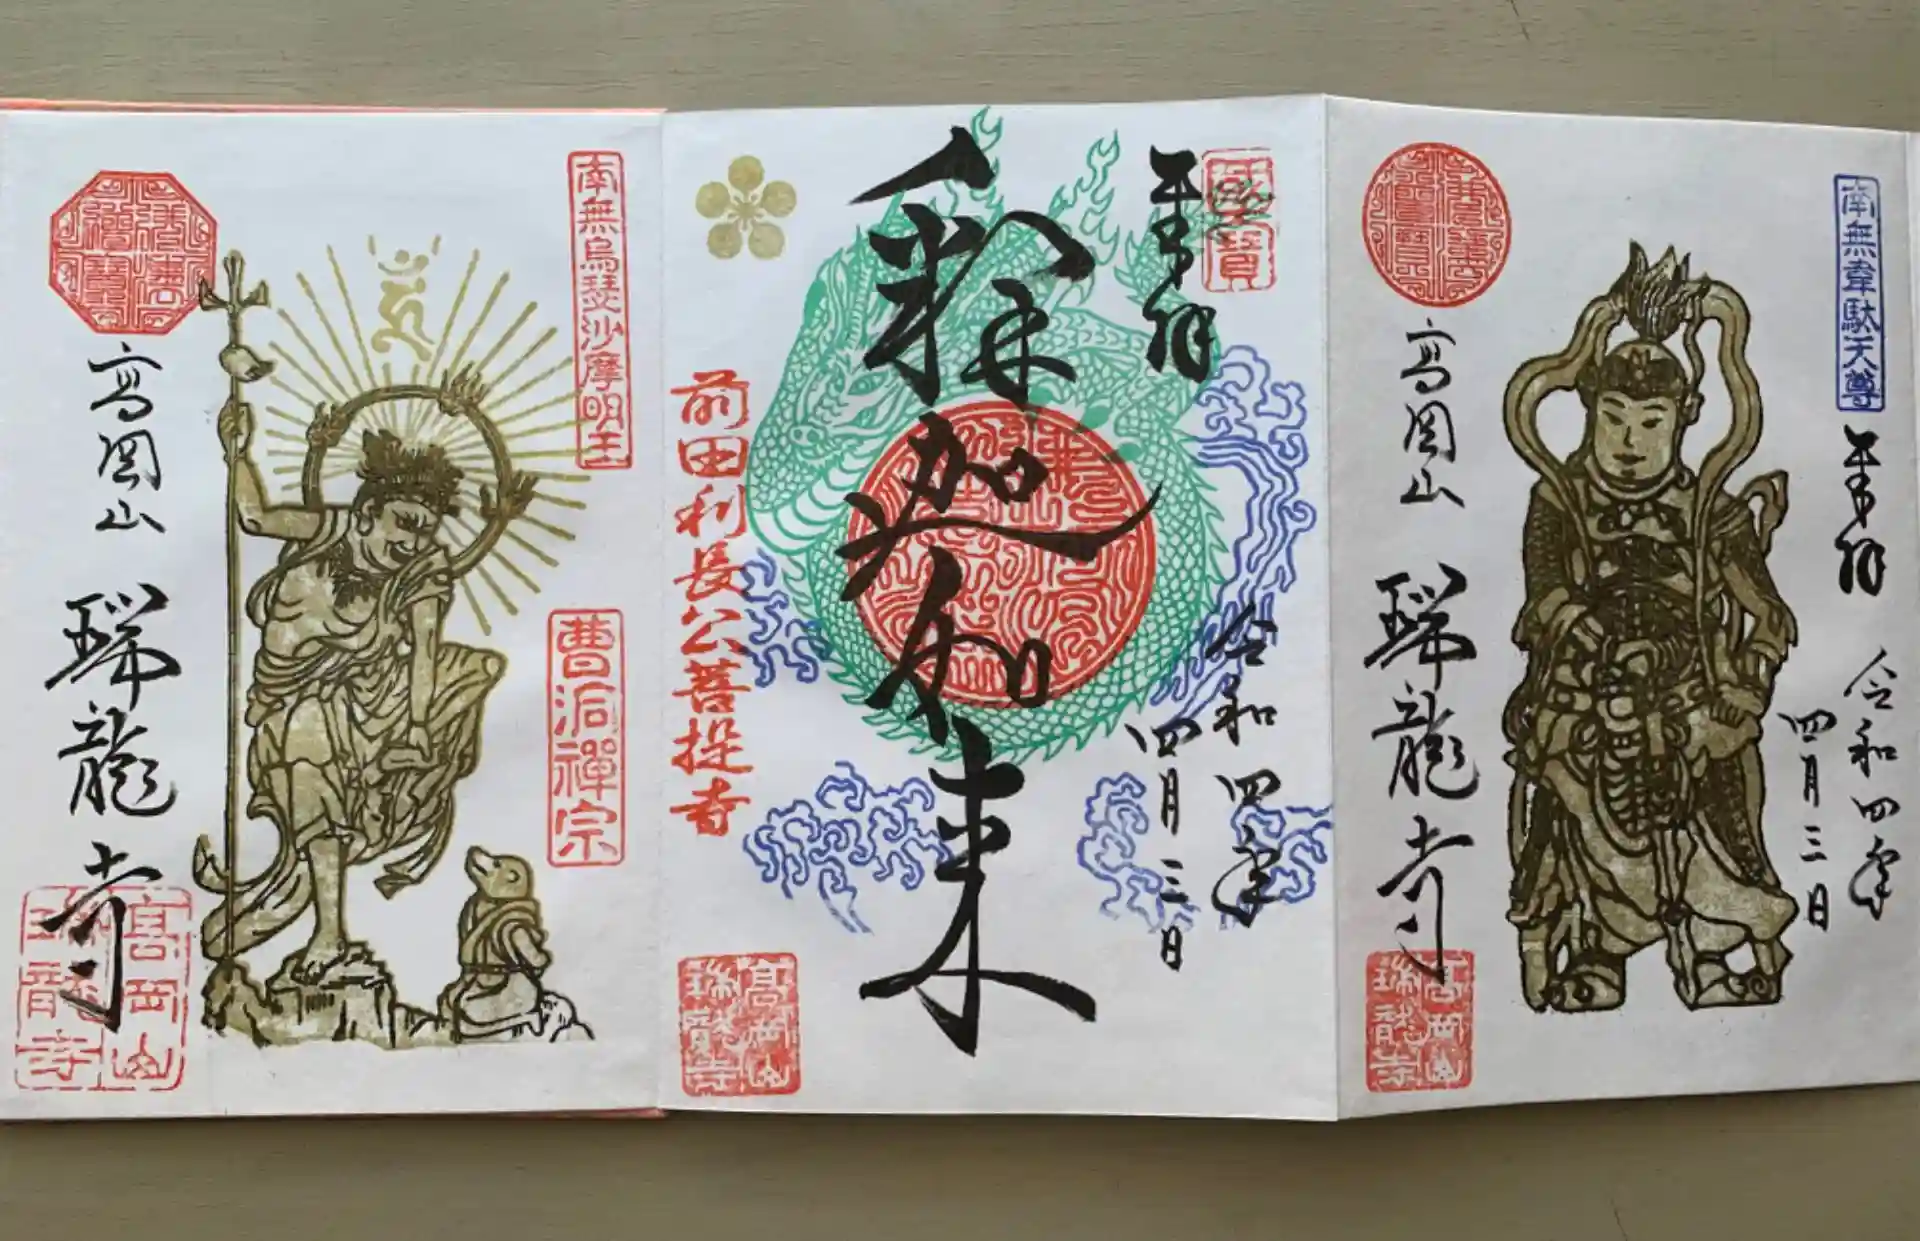 奉拝
令和四年
四月三日
南無韋駄天尊
高岡山
瑞龍寺
高岡山
瑞龍寺
奉拝
令和四年
四月三日
釈迦如来
前田利長公菩提寺
高岡山
瑞龍寺
南無烏瑟沙摩明王
曹洞禅宗
高岡山
瑞龍寺
高岡山
瑞龍寺